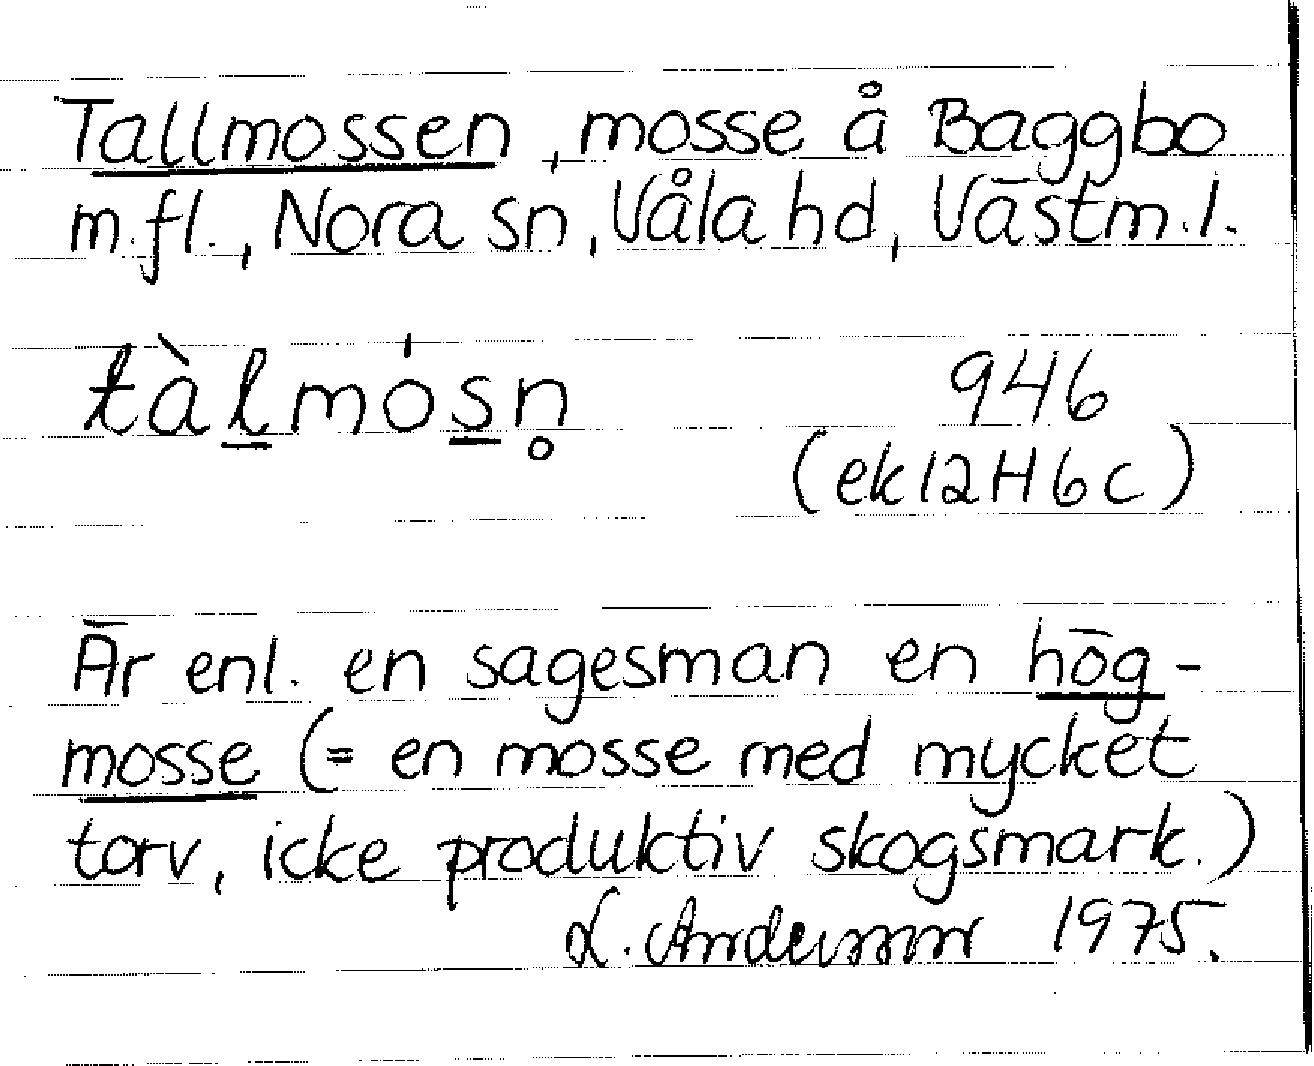 Tallmossen, mosse å Baggbo
m.fl., Nora sn, Våla hd, Västm.l.
tàl̲mós̲n̥ 946
(ek 12H6c)
Är enl. en sagesman en hög-
mosse (= en mosse med mycket
torv, icke produktiv skogsmark.)
L. Andersson 1975.